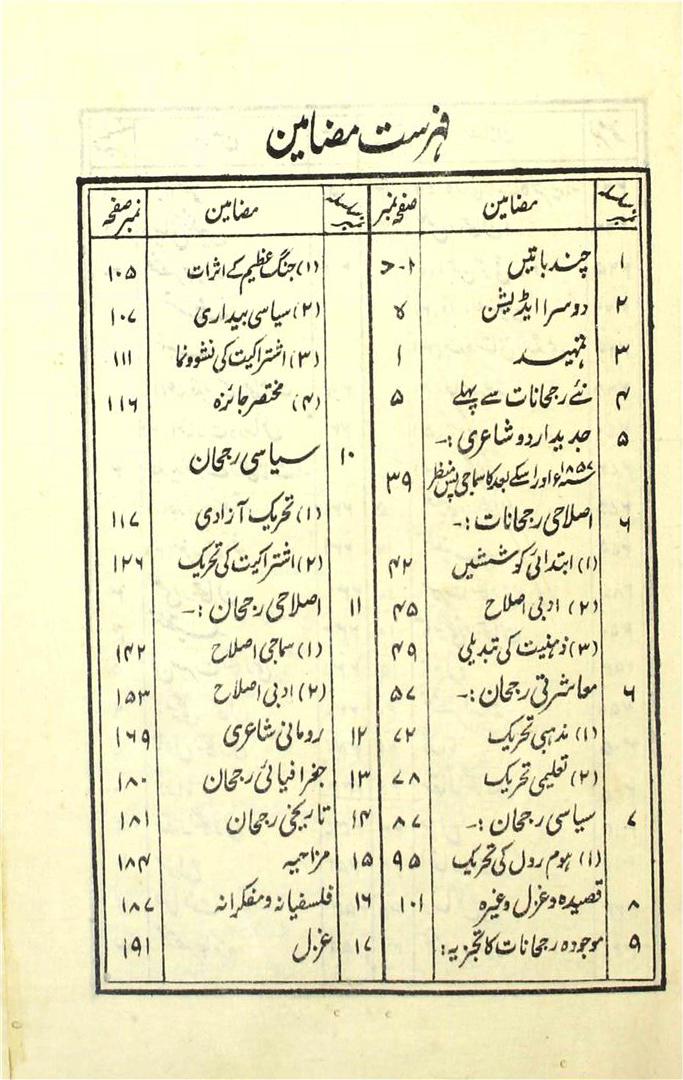 فہرست مضامین
سلسلہ نمبر مضامین صفحہ نمبر
۱ چند باتیں ۱-د
۲ دوسرا ایڈیشن ہ
۳ تمہید ۱
۴ نئے رجحانات سے پہلے ۵
۵ جدید اردو شاعری :۔
۱۸۵۷ء اور اسکے بعد کا سماجی پس منظر ۳۹
۶ اصلاحی رجحانات :۔
(۱) ابتدائی کوششیں ۴۲
(۲) ادبی اصلاح ۴۵
(۳) ذہنیت کی تبدیلی ۴۹
۶ معاشرتی رجحان :۔ ۵۷
(۱) مذہبی تحریک ۷۲
(۲) تعلیمی تحریک ۷۸
۷ سیاسی رجحان :۔ ۸۷
(۱) ہوم رول کی تحریک ۹۵
۸ قصیدہ و غزل وغیرہ ۱۰۱
۹ موجودہ رجحانات کا تجزیہ :
سلسلہ نمبر مضامین نمبر صفحہ
(۱) جنگ عظیم کے اثرات ۱۰۵
(۲) سیاسی بیداری ۱۰۷
(۳) اشتراکیت کی نشوونما ۱۱۱
(۴) مختصر جائزہ ۱۱۶
۱۰ سیاسی رجحان
(۱) تحریک آزادی ۱۱۷
(۲) اشتراکیت کی تحریک ۱۲۶
۱۱ اصلاحی رجحان :۔
(۱) سماجی اصلاح ۱۴۲
(۲) ادبی اصلاح ۱۵۳
۱۲ رومانی شاعری ۱۶۹
۱۳ جغرافیائی رجحان ۱۸۰
۱۴ تاریخی رجحان ۱۸۱
۱۵ مزاحیہ ۱۸۴
۱۶ فلسفیانہ و مفکرانہ ۱۸۷
۱۷ غزل ۱۹۱